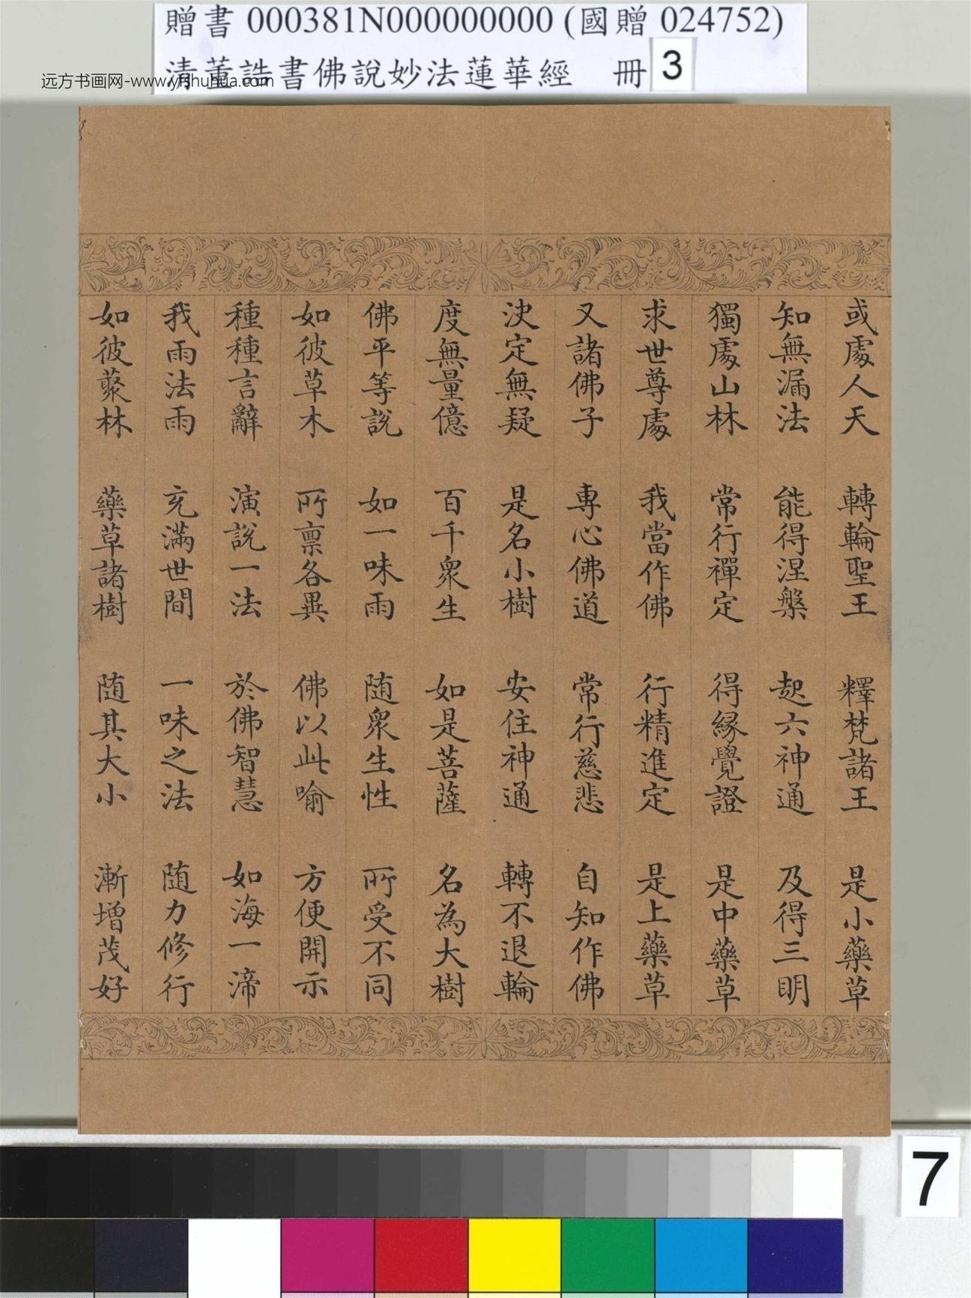 贈書 000381N000000000 (國贈 024752)
清董誥書佛說妙法蓮華經 冊 3
远方书画网-www.yfshuhua.com
或處人天 轉輪聖王 釋梵諸王 是小藥草
知無漏法 能得涅槃 起六神通 及得三明
獨處山林 常行禪定 得緣覺證 是中藥草
求世尊處 我當作佛 行精進定 是上藥草
又諸佛子 專心佛道 常行慈悲 自知作佛
決定無疑 是名小樹 安住神通 轉不退輪
度無量億 百千衆生 如是菩薩 名為大樹
佛平等說 如一味雨 随衆生性 所受不同
如彼草木 所稟各異 佛以此喻 方便開示
種種言辭 演說一法 於佛智慧 如海一渧
我雨法雨 充滿世間 一味之法 随力修行
如彼藂林 藥草諸樹 随其大小 漸增茂好
7